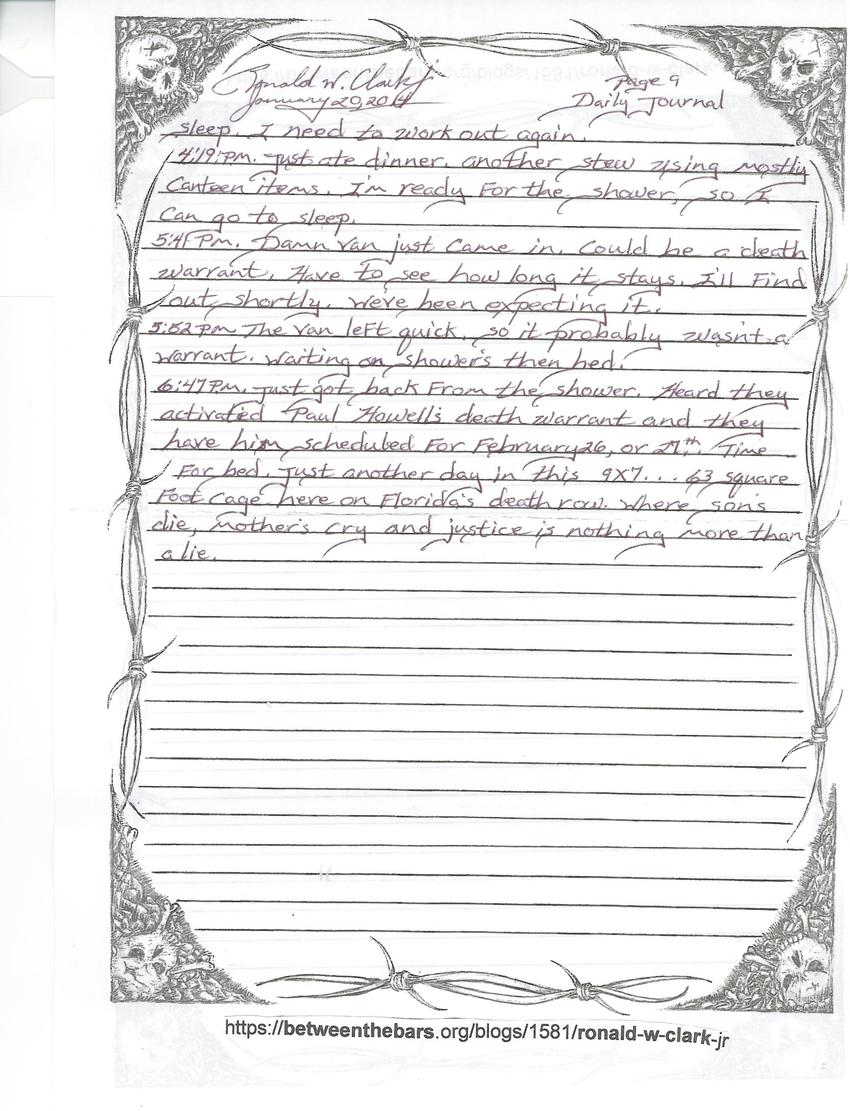 Ronald W. Clark Jr
Page 9
January 20, 2014
Daily Journal
sleep. I need to work out again.
4:19 pm. Just ate dinner. another stew using mostly
Canteen items. I'm ready For the shower, so I
can go to sleep.
5:41 pm. Damn van just came in. Could be a death
warrant. Have to see how long it stays. I'll Find
out shortly. We've been expecting it.
5:52 pm The van left quick, so it probably wasn't a
warrant. Waiting on shower's then bed.
6:47 pm. Just got back From the shower. Heard they
activated Paul Howell's death warrant and they
have him scheduled For February 26, or 27th. Time
For bed. Just another day in this 9x7... 63 square
Foot cage here on Florida's death row. Where son's
die, mother's cry and justice is nothing more than
a lie.
https://betweenthebars.org/blogs/1581/ronald-w-clark-jr